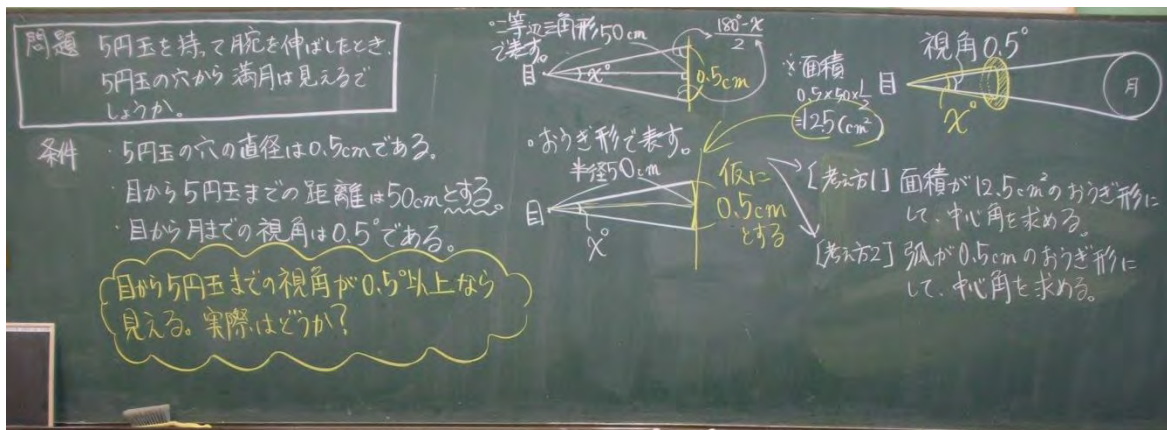 問題 5円玉を持って腕を伸ばしたとき、
5円玉の穴から満月は見えるで
しょうか。
条件 ・5円玉の穴の直径は0.5cmである。
・目から5円玉までの距離は50cmとする。
・目から月までの視角は0.5°である。
目から5円玉までの視角が0.5°以上なら
見える。実際はどうか?
・二等辺三角形
で表す。
50cm
目
x°
0.5cm
180°-x
2
※面積
0.5×50×1/2
=12.5(cm²)
・おうぎ形で表す。
半径50cm
目
x°
仮に
0.5cm
とする
視角0.5°
目
x°
月
[考え方1] 面積が12.5cm²のおうぎ形に
して、中心角を求める。
[考え方2] 弧が0.5cmのおうぎ形に
して、中心角を求める。